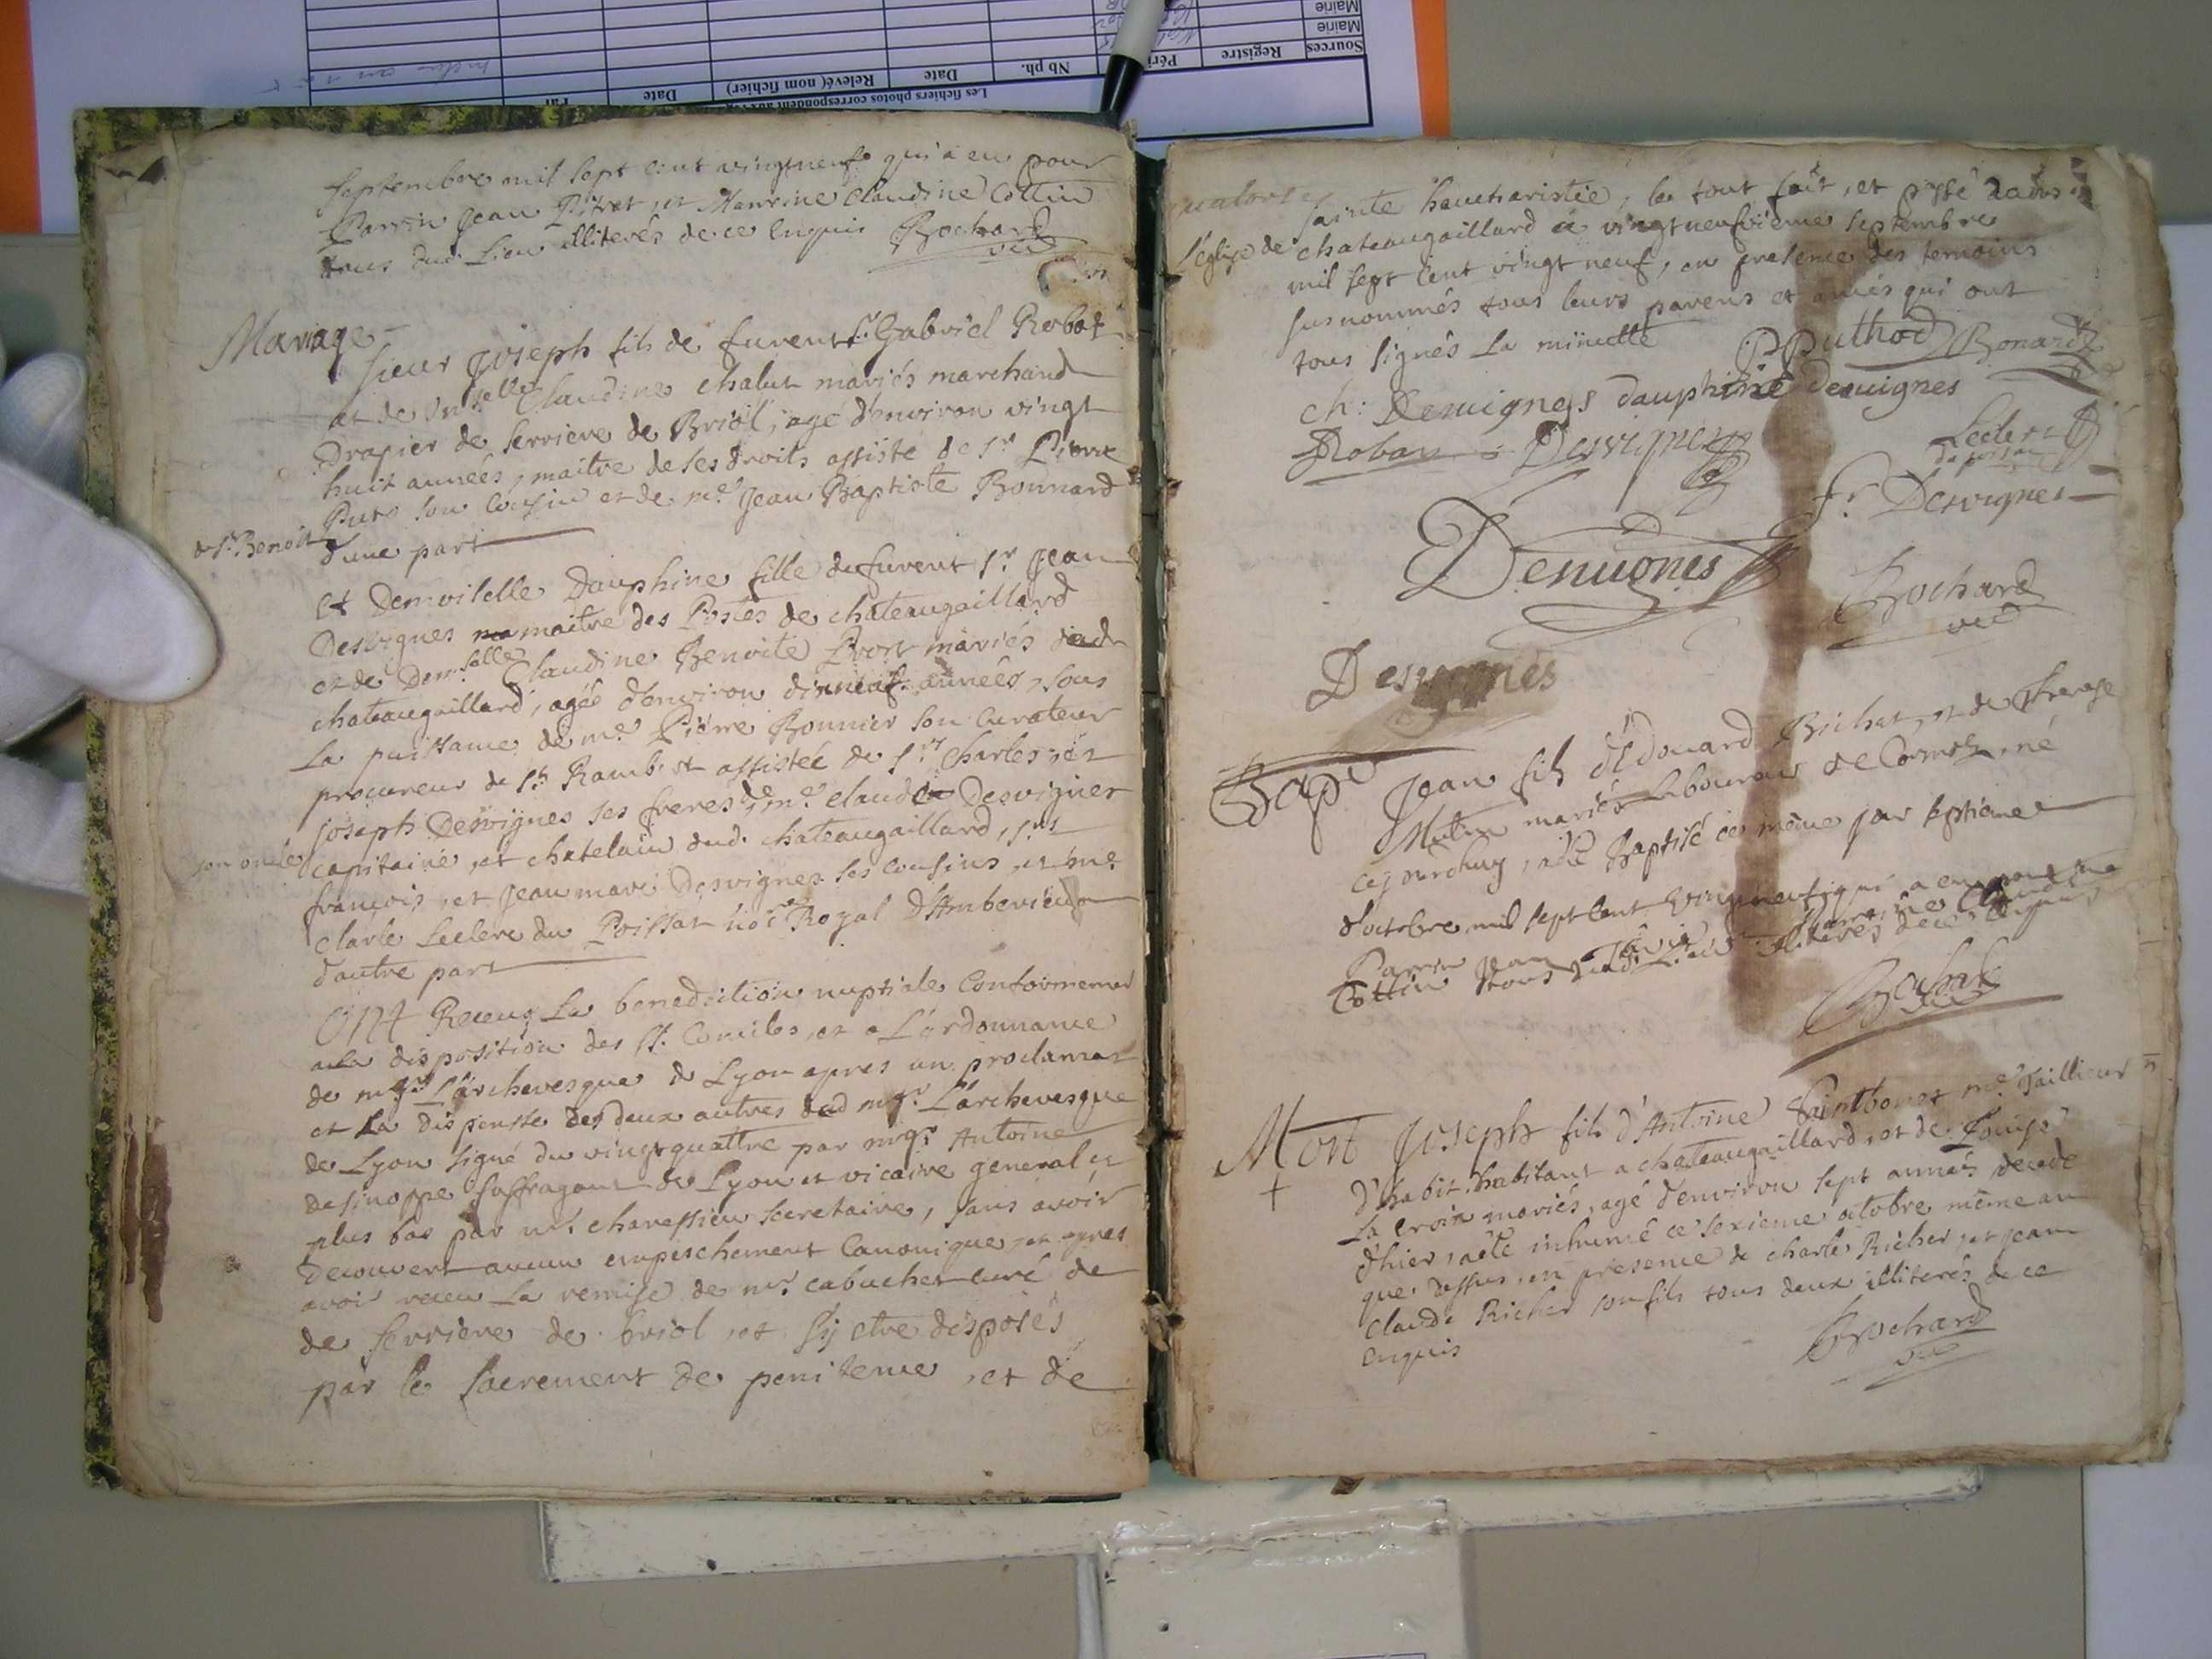 Septembre mil sept cent vingtneuf qui a eu pour
Parrin Jean Pitret, et Marrine Claudine Cottin
tous dud. Lieu illiterés de ce Enquis Brochard
vic
Mariage
Sieur Joseph fils de furent Sr. Gabriel Robat
et de Dmselle Claudine chalut mariés marchand
Drapier de Serriere de Briol, agé d'environ vingt
huit années, maitre de ses droits assisté de Sr. Pierre
son Cousin et de me. Jean Baptiste Bonnard
de St. Benoit d'une part
Et Demoiselle Dauphine fille de furent Sr. Jean
Desvignes maitre des Postes de chateaugaillard
et de Dem.selle Claudine Benoite mariés dud.
chateaugaillard, agée d'environ dixneuf années, sous
La puissance de me. Pierre Bonnier son Curateur
procureur de St. Rambert assistée de Srs. Charles, et
Joseph Desvignes ses freres, de me. claude Desvignes
son oncle capitaine, et chatelain dud. chateaugaillard, Srs
françois, et Jean marie Desvignes ses Cousins, et me.
Charle Leclerc du Poissat no.re Royal d'Amberieu
d'autre part
Ont Receuz La benediction nuptiale Conformement
a la disposition des St. Conciles, et a L'ordonnance
de mgr. L'archevesque de Lyon apres un proclamat
et La dispense des deux autres dud mgr. L'archevesque
de Lyon signé du vingtquattre par mgr. Antoine
de sinoppe suffragant de Lyon et vicaire general et
plus bas par mr. chavessieu secretaire, sans avoir
Decouvert aucun empeschement Canonique, et apres
avoir receu La remise de mr. cabuchet curé de
de serriere de briol, et s'y etre disposés
par le sacrement de penitence, et de
quatorze
Sainte heucharistie, le tout fait, et passé dans
L'église de chateaugaillard ce vingtneufvieme septembre
mil sept cent vingt neuf, en presence des temoins
susnommés tous leurs parens et amiés qui ont
tous signés La minutte PPuthod Bonard
ch: Deuignes dauphine deuignes
Robat Desvignes Leclerc
du poissat
fr Desvignes
Deuuignes
Brochard
vic
Desvignes
Bap. Jean fils d'Edouard Bichat, et de Therese
mariés laboureurs de Cormoz, né
cejourdhuy, a été Baptisé ce même jour septieme
d'octobre mil sept cent vingtneuf qui a eu pour
Parrin Jean Marrine Claudine
Cottin tous dud. Lieu illiterés de ce Enquis
Brochard
vic
Mort Joseph fils d'Antoine Saintbonet me. Taillieur
d'habit habitant a chateaugaillard, et de Louise
La croix mariés, agé d'environ sept années decedé
d'hier, a été inhumé ce sexieme octobre même an
que dessus, en presence de charle Richer, et Jean
claude Richer son fils tous deux illiterés de ce
enquis Brochard
vic
Les fichiers photos correspondent aux
Sources Registre Péri Nb ph. Date Relevé( nom fichier) Date Par
Mairie
Mairie